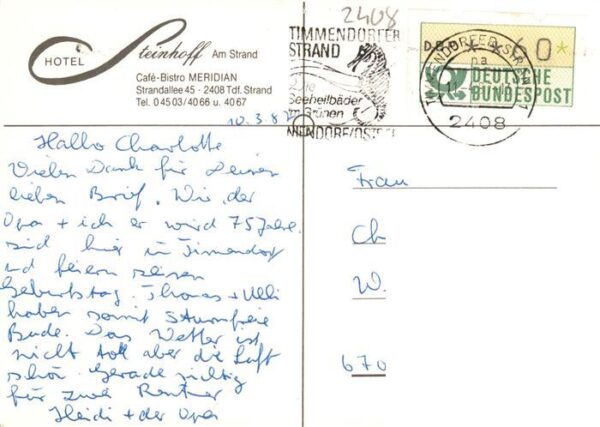 HOTEL Steinhoff Am Strand
Café-Bistro MERIDIAN
Strandallee 45 · 2408 Tdf. Strand
Tel. 0 45 03/40 66 u. 40 67
2408
TIMMENDORFER
STRAND
Seeheilbäder
im Grünen
NIENDORF/OSTSEE
DBP * * 60 *
DEUTSCHE
BUNDESPOST
2408
10.3.87
Hallo Charlotte
Vielen Dank für Deinen
lieben Brief. Wir, der
Opa + ich er wird 75 Jahre
sind hier in Timmendorf
und feiern seinen
Geburtstag. Thomas + Ulli
haben somit Sturmfreie
Bude. Das Wetter ist
nicht toll aber die Luft
schön. Gerade richtig
für zwei Rentner
Heidi + der Opa
Frau
Ch
W.
670